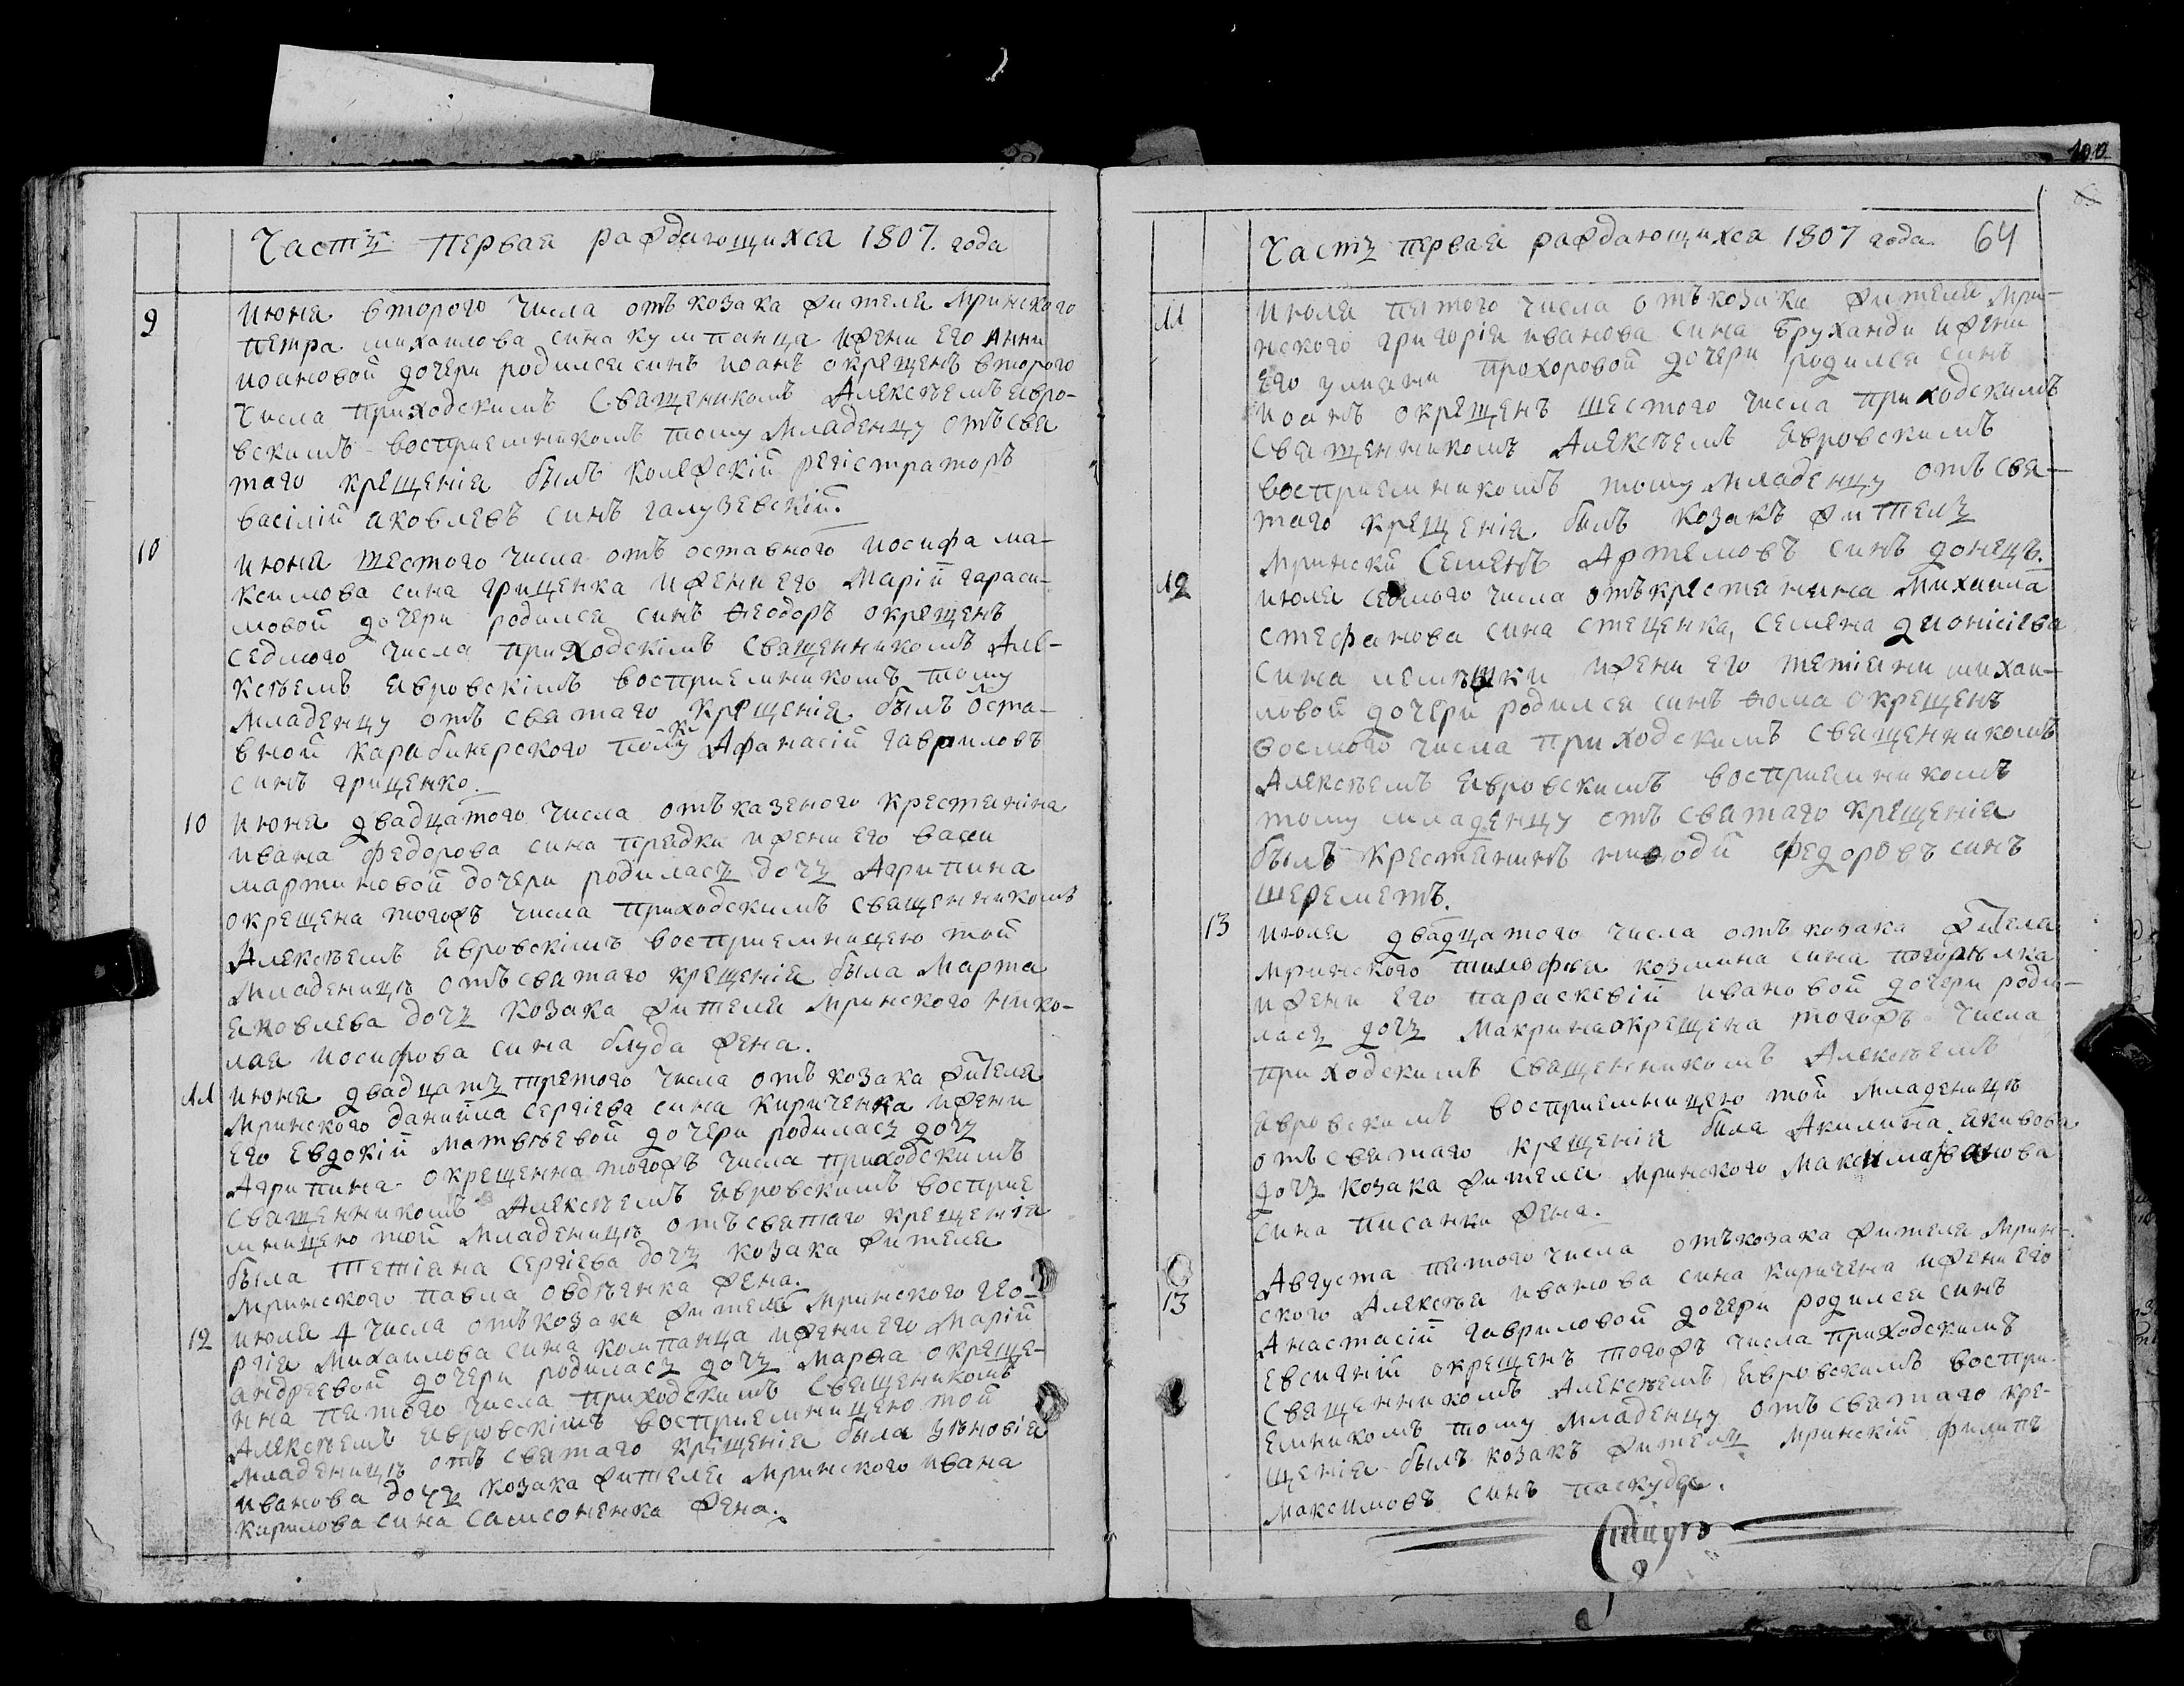 Часть первая раждающихся 1807. года
9
июня второго числа отъ козака жителя Мринского
петра михаилова сина кулпанца ижени Его Анни
иоановой дочери родился синъ иоанъ окрещенъ второго
числа приходскимъ Священикомъ Алексѣемъ явро-
вскимъ воспрiемникомъ тому Младенцу отъ свя
таго крещенiя былъ колежскiй регiстраторъ
василiй яковлевъ синъ галузевскiй.
10
июня шестого числа отъ оставного иосифа ма-
ксимова сина грищенка ижени его Марiй гараси-
мовой дочери родился синъ ѳеодоръ окрещенъ
седмого числа приходскiмъ священникомъ Але-
ксѣемъ явровскiмъ восприемникомъ тому
Младенцу отъ святаго крещенiя былъ оста-
вной карабинерского полку Афанасiй гавриловъ
синъ грищенко.
10
июня двадцатого числа отъ казеного крестянiна
ивана федорова сина прядки ижени его васи
мартиновой дочери родилась дочь Агрипина
окрещена тогожъ числа приходскимъ священникомъ
Алексѣемъ явровскiмъ восприемницею той
Младеницѣ отъ святаго крещенiя была Марта
яковлева дочь козака жителя мринского нико-
лая иосифова сина блуда жена.
11
июня двадцать третого числа отъ козака жителя
Мринского данiила сергiева сина Кириченка ижени
его Евдокiй матвѣевой дочери родилась дочь
Агрипина окрещенна тогожъ числа приходскимъ
священникомъ Алексѣемъ явровскимъ восприе
мницею той младеницѣ отъ святаго крещенiя
была Тетiана Сергiева дочь козака жителя
мринского павла овдѣенка жена.
12
июля 4 числа отъ козака жителя Мринского гео-
ргiя Михаилова сина компанца ижени его Марiй
андреевой дочери родилась дочь Марѳа окреще-
нна пятого числа приходскимъ Священикомъ
Алексѣемъ явровскiмъ восприемницею той
младеницѣ отъ святаго крещенiя была зѣновiя
иванова дочь козака жителя Мринского ивана
кирилова сина самсоненка жена.
100
Часть первая раждающихся 1807 года 64
11
июля пятого числа отъ козака жителя Мри-
нского григорiя иванова сина Бруханди ижени
Его улияни прохоровой дочери родился синъ
иоанъ окрещенъ шестого числа приходскимъ
священникомъ Алексѣемъ явровскимъ
восприемникомъ тому младенцу отъ свя-
таго крещенiя былъ козакъ житель
мрински Семенъ Артемовъ синъ донецъ.
12
июля седмого числа отъ крестянина Михаила
стефанова сина стеценка, семена дионiсiева
сина лемѣшки ижени его тетiяни михаи-
ловой дочери родился синъ ѳома окрещенъ
восмого числа приходскимъ священникомъ
Алексѣемъ явровскимъ восприемникомъ
тому младенцу отъ святаго крещенiя
былъ крестянинъ федоровъ синъ
шереметъ.
13
июля двадцатого числа отъ козака жителя
мринского тимофея козмина сина погорѣлка
ижени его параскевiй ивановой дочери роди-
лась дочь Макрина окрещена тогожъ числа
приходскимъ священникомъ Алексѣемъ
явровскимъ восприемницею той младеницѣ
отъ святаго крещенiя была Акилина яковова
дочь козака жителя мринского Максима иванова
сина писанки жена.
13
Августа пятого числа отъ козака жителя Мрин-
ского Алексѣя иванова сина Киричена ижени его
Анастасiй гавриловой дочери родился синъ
Евсигнiй окрещенъ тогожъ числа приходскимъ
священникомъ Алексѣемъ явровскимъ воспри-
емникомъ тому младенцу отъ святаго кре-
щенiя былъ козакъ житель мринскiй филипъ
максимовъ синъ паскуда.